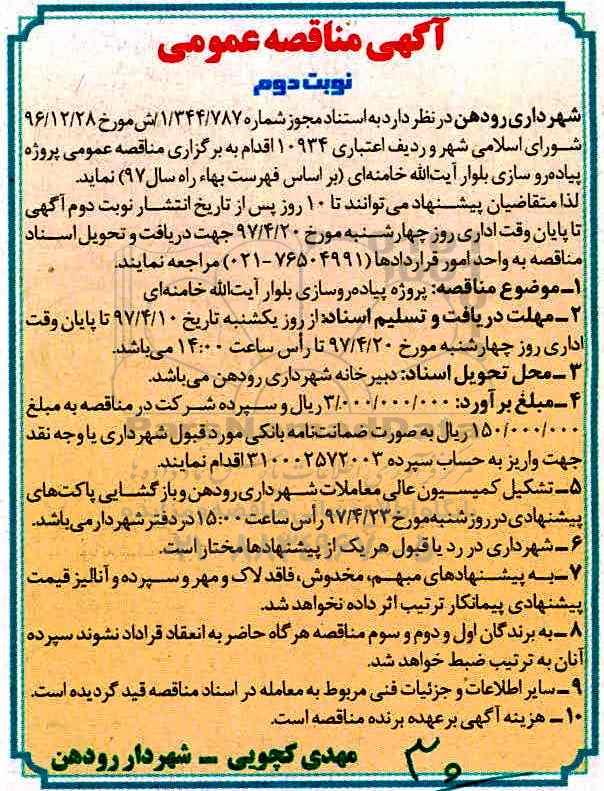 آگهی مناقصه عمومی
نوبت دوم
شهرداری رودهن در نظر دارد به استناد مجوز شماره ۱/۳۴۴/۷۸۷/ش مورخ ۹۶/۱۲/۲۸
شورای اسلامی شهر و ردیف اعتباری ۱۰۹۳۴ اقدام به برگزاری مناقصه عمومی پروژه
پیاده‌رو سازی بلوار آیت‌الله خامنه‌ای (بر اساس فهرست بهاء راه سال ۹۷) نماید.
لذا متقاضیان پیشنهاد می‌توانند تا ۱۰ روز پس از تاریخ انتشار نوبت دوم آگهی
تا پایان وقت اداری روز چهارشنبه مورخ ۹۷/۴/۲۰ جهت دریافت و تحویل اسناد
مناقصه به واحد امور قراردادها (۷۶۵۰۴۹۹۱-۰۲۱) مراجعه نمایند.
۱ـ موضوع مناقصه: پروژه پیاده‌روسازی بلوار آیت‌الله خامنه‌ای
۲ـ مهلت دریافت و تسلیم اسناد: از روز یکشنبه تاریخ ۹۷/۴/۱۰ تا پایان وقت
اداری روز چهارشنبه مورخ ۹۷/۴/۲۰ تا رأس ساعت ۱۴:۰۰ می‌باشد.
۳ـ محل تحویل اسناد: دبیرخانه شهرداری رودهن می‌باشد.
۴ـ مبلغ برآورد: ۳/۰۰۰/۰۰۰/۰۰۰ ریال و سپرده شرکت در مناقصه به مبلغ
۱۵۰/۰۰۰/۰۰۰ ریال به صورت ضمانت‌نامه بانکی مورد قبول شهرداری یا وجه نقد
جهت واریز به حساب سپرده ۳۱۰۰۰۰۲۵۷۲۰۰۳ اقدام نمایند.
۵ـ تشکیل کمیسیون عالی معاملات شهرداری رودهن و بازگشایی پاکت‌های
پیشنهادی در روز شنبه مورخ ۹۷/۴/۲۳ رأس ساعت ۱۵:۰۰ در دفتر شهردار می‌باشد.
۶ـ شهرداری در رد یا قبول هر یک از پیشنهادها مختار است.
۷ـ به پیشنهادهای مبهم، مخدوش، فاقد لاک و مهر و سپرده و آنالیز قیمت
پیشنهادی پیمانکار ترتیب اثر داده نخواهد شد.
۸ـ به برندگان اول و دوم و سوم مناقصه هرگاه حاضر به انعقاد قراداد نشوند سپرده
آنان به ترتیب ضبط خواهد شد.
۹ـ سایر اطلاعات و جزئیات فنی مربوط به معامله در اسناد مناقصه قید گردیده است.
۱۰ـ هزینه آگهی برعهده برنده مناقصه است.
مهدی کچویی ـ شهردار رودهن